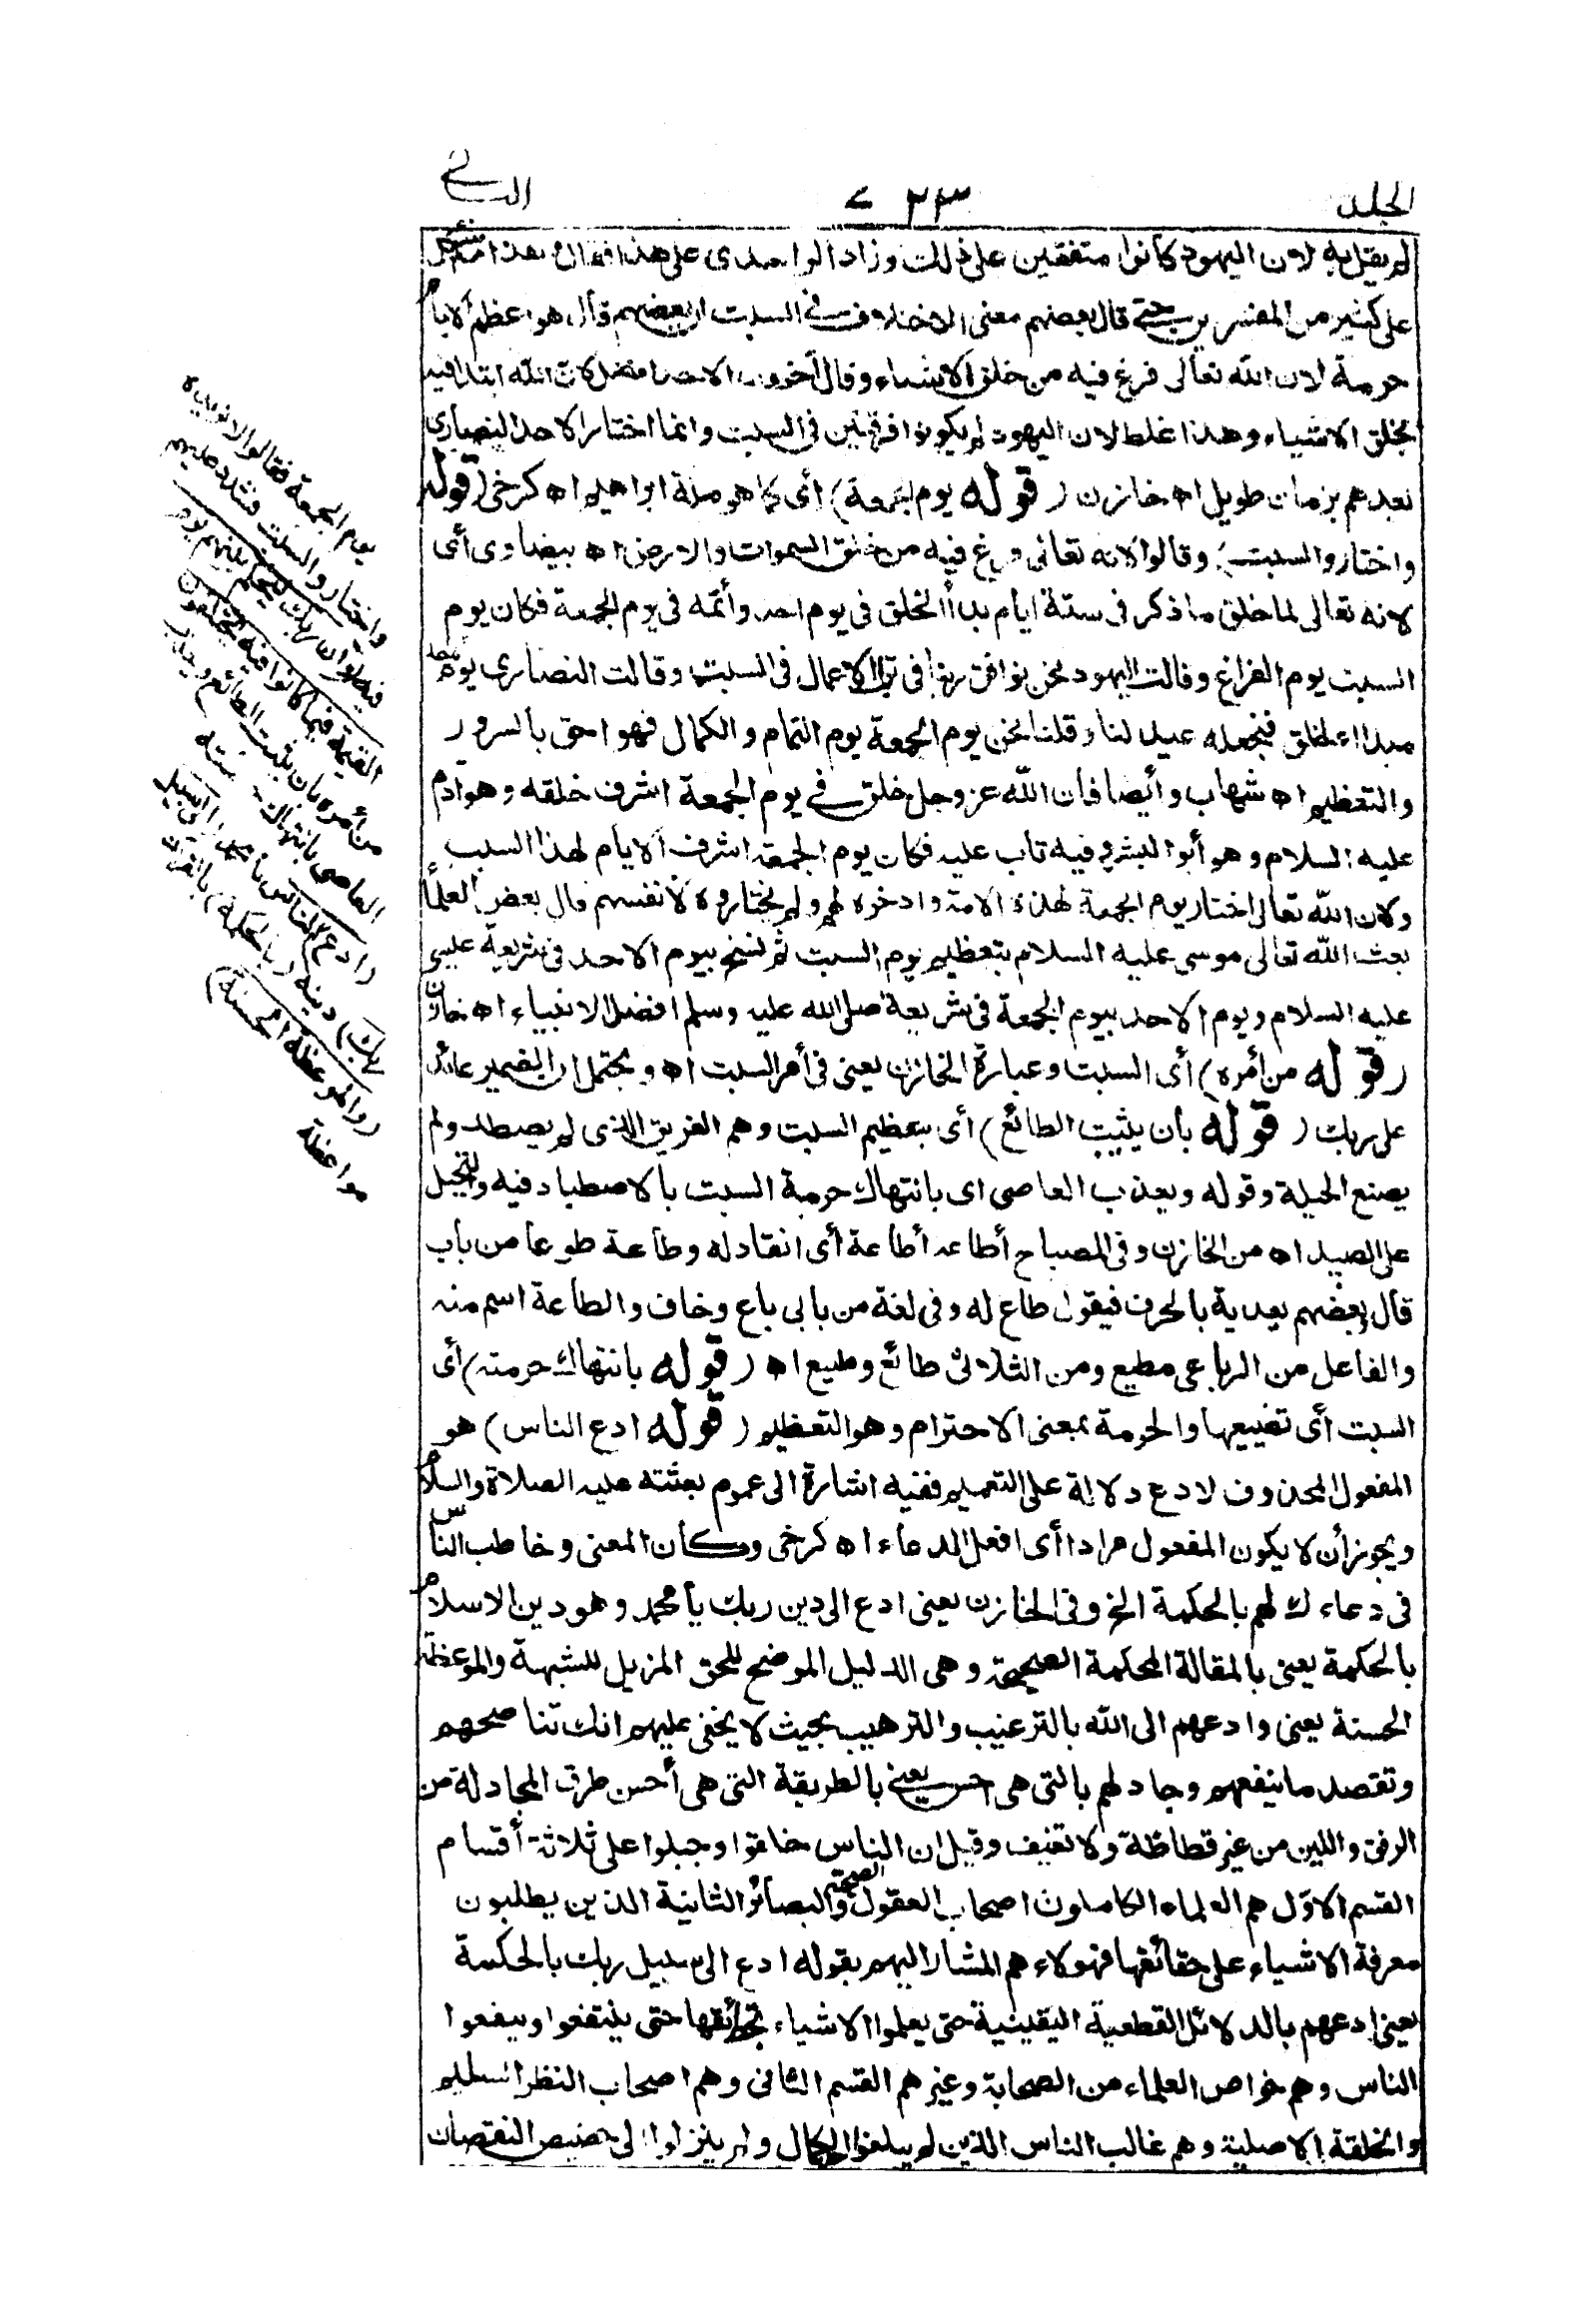 الجلد
٢٣٧
الثاني
لم يقل به لان اليهود كانوا متفقين على ذلك وزاد الواحدى على هذا فقال وهذا أشكل
على كثير من المفسرين حتى قال بعضهم معنى الاختلاف فى السبت ان بعضهم قال هو اعظم الايام
حرمة لان الله تعالى فرغ فيه من خلق الاشياء وقال آخرون الاحد افضل لان الله ابتدأ فيه
بخلق الاشياء وهذا غلط لان اليهود لم يكونوا فرقتين فى السبت وانما اختار الاحد النصارى
بعدهم بزمان طويل اه خازن (قوله يوم الجمعة) أى كما هو ملة ابراهيم اه كرخى (قوله
واختاروا السبت) وقالوا لانه تعالى فرغ فيه من خلق السموات والارض اه بيضاوى أى
لانه تعالى لما خلق ما ذكر فى ستة ايام بدأ الخلق فى يوم احد وأتمه فى يوم الجمعة فكان يوم
السبت يوم الفراغ وقالت اليهود نحن نوافق ربنا فى ترك الاعمال فى السبت وقالت النصارى يوم الاحد
مبدأ الخلق فنجعله عيدا لنا وقلنا نحن يوم الجمعة يوم التمام والكمال فهو احق بالسرور
والتعظيم اه شهاب وأيضا فان الله عز وجل خلق فى يوم الجمعة اشرف خلقه وهو ادم
عليه السلام وهو أبو البشر وفيه تاب عليه فكان يوم الجمعة اشرف الايام لهذا السبب
ولان الله تعالى اختار يوم الجمعة لهذه الامة وادخره لهم ولم يختاروه لانفسهم قال بعض العلمأ
بعث الله تعالى موسى عليه السلام بتعظيم يوم السبت ثم نسخ بيوم الاحد فى شريعة عيسى
عليه السلام ويوم الاحد بيوم الجمعة فى شريعة صلى الله عليه وسلم افضل الانبياء اه خازن
(قوله من أمره) أى السبت وعبارة الخازن يعنى فى أمر السبت اه ويحتمل ان الضمير عائد
على ربك (قوله بأن يثيب الطائع) أى بتعظيم السبت وهم الفريق الذى لم يصطد ولم
يصنع الحيلة وقوله ويعذب العاصى اى بانتهاك حرمة السبت بالاصطياد فيه والتحيل
على الصيد اه من الخازن وفى المصباح أطاعه أطاعة أى انقاد له وطاعة طوعا من باب
قال وبعضهم يعديه بالحرف فيقول طاع له وفى لغة من بابى باع وخاف والطاعة اسم منه
والفاعل من الرباعى مطيع ومن الثلاثى طائع وطيع اه (قوله بانتهاك حرمته) أى
السبت أى تضييعها والحرمة بمعنى الاحترام وهو التعظيم (قوله ادع الناس) هو
المفعول المحذوف لادع دلالة على التعميم ففيه اشارة الى عموم بعثته عليه الصلاة والسلام
ويجوز أن لا يكون المفعول مرادا أى افعل الدعاء اه كرخى وكأن المعنى وخاطب الناس
فى دعاءك لهم بالحكمة الخ وفى الخازن يعنى ادع الى دين ربك يا محمد وهو دين الاسلام
بالحكمة يعنى بالمقالة المحكمة الصحيحة وهى الدليل الموضح للحق المزيل للشبهة والموعظة
الحسنة يعنى وادعهم الى الله بالترغيب والترهيب بحيث لا يخفى عليهم انك تناصحهم
وتقصد ما ينفعهم وجادلهم بالتى هى احسن يعنى بالطريقة التى هى أحسن طرق المجادلة من
الرفق واللين من غير فظاظة ولا تعنيف وقيل ان الناس خلقوا وجبلوا على ثلاثة أقسام
القسم الاول هم العلماء الكاملون اصحاب العقول الصحيحة والبصائر الثاقبة الذين يطلبون
معرفة الاشياء على حقائقها فهولاء هم المشار اليهم بقوله ادع الى سبيل ربك بالحكمة
يعنى ادعهم بالدلائل القطعية اليقينية حتى يعلموا الاشياء بحقائقها حتى ينتفعوا وينفعوا
الناس وهم خواص العلماء من الصحابة وغيرهم القسم الثانى وهم اصحاب النظر السليم
والخلقة الاصلية وهم غالب الناس الذين لم يبلغوا الكمال ولم ينزلوا الى حضيض النقصان
يوم الجمعة فقالوا لا نريده
واختاروا السبت فشدد عليهم
فيه (وان ربك ليحكم بينهم يوم
القيمة فيما كانوا فيه يختلفون)
من أمره بان يثيب الطائع ويعذب
العاصى بانتهاك حرمته
(ادع) الناس يا محمد (الى سبيل
ربك) دينه (بالحكمة) بالقرآن
(والموعظة الحسنة)
مواعظه